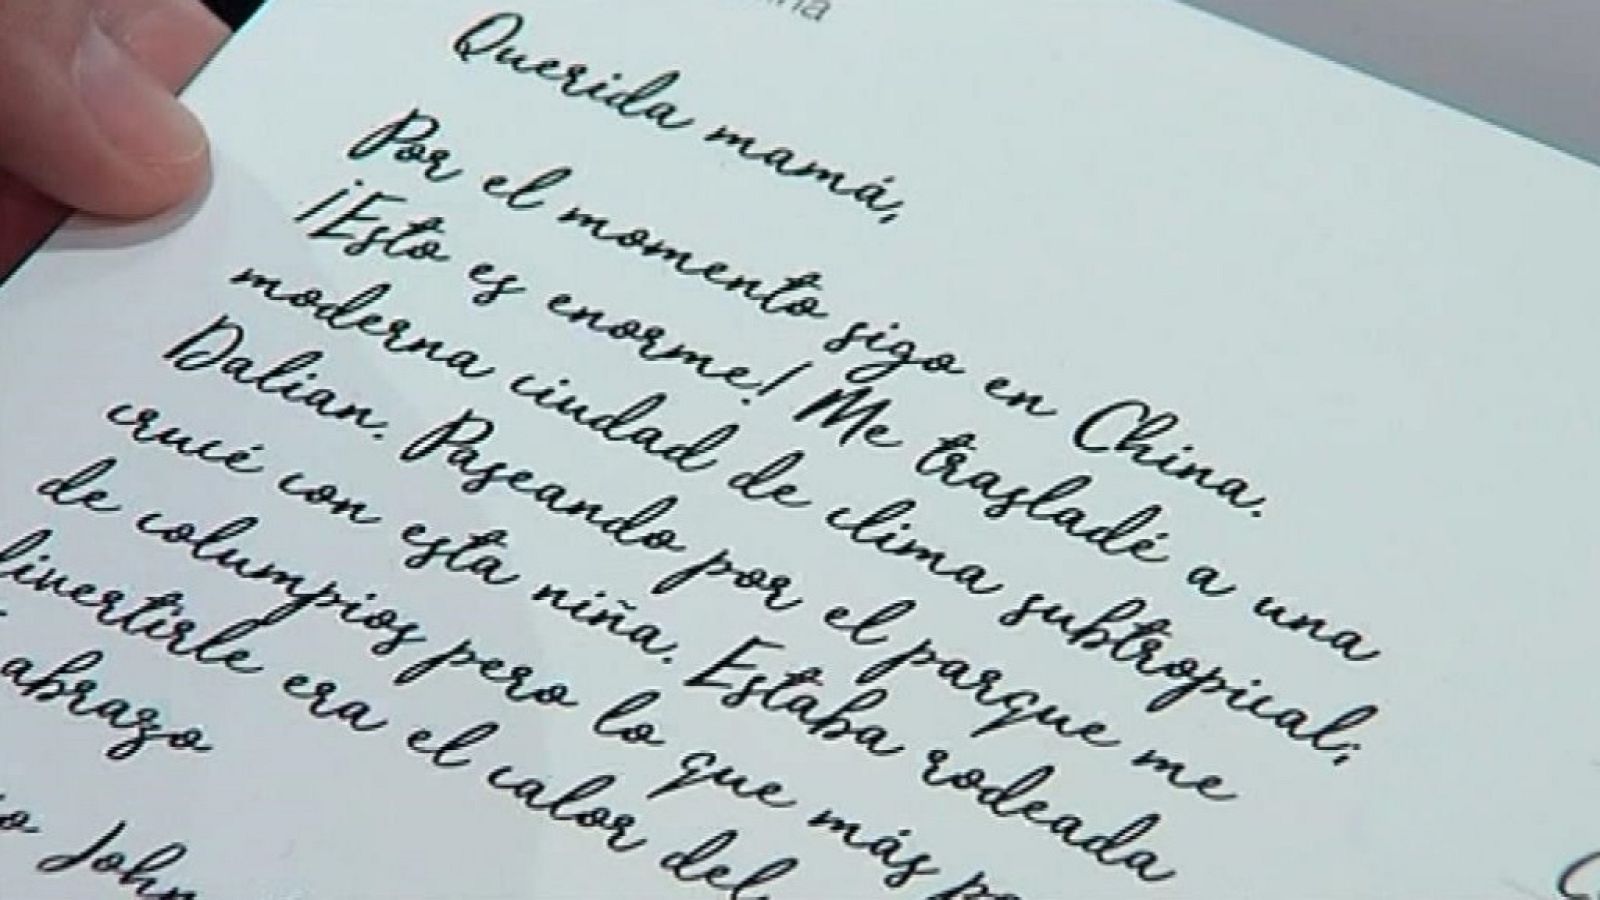 Querida mamá,
Por el momento sigo en China.
¡Esto es enorme! Me trasladé a una
moderna ciudad de clima subtropical;
Dalian. Paseando por el parque me
crucé con esta niña. Estaba rodeada
de columpios pero lo que más
divertirle era el calor del
abrazo
John